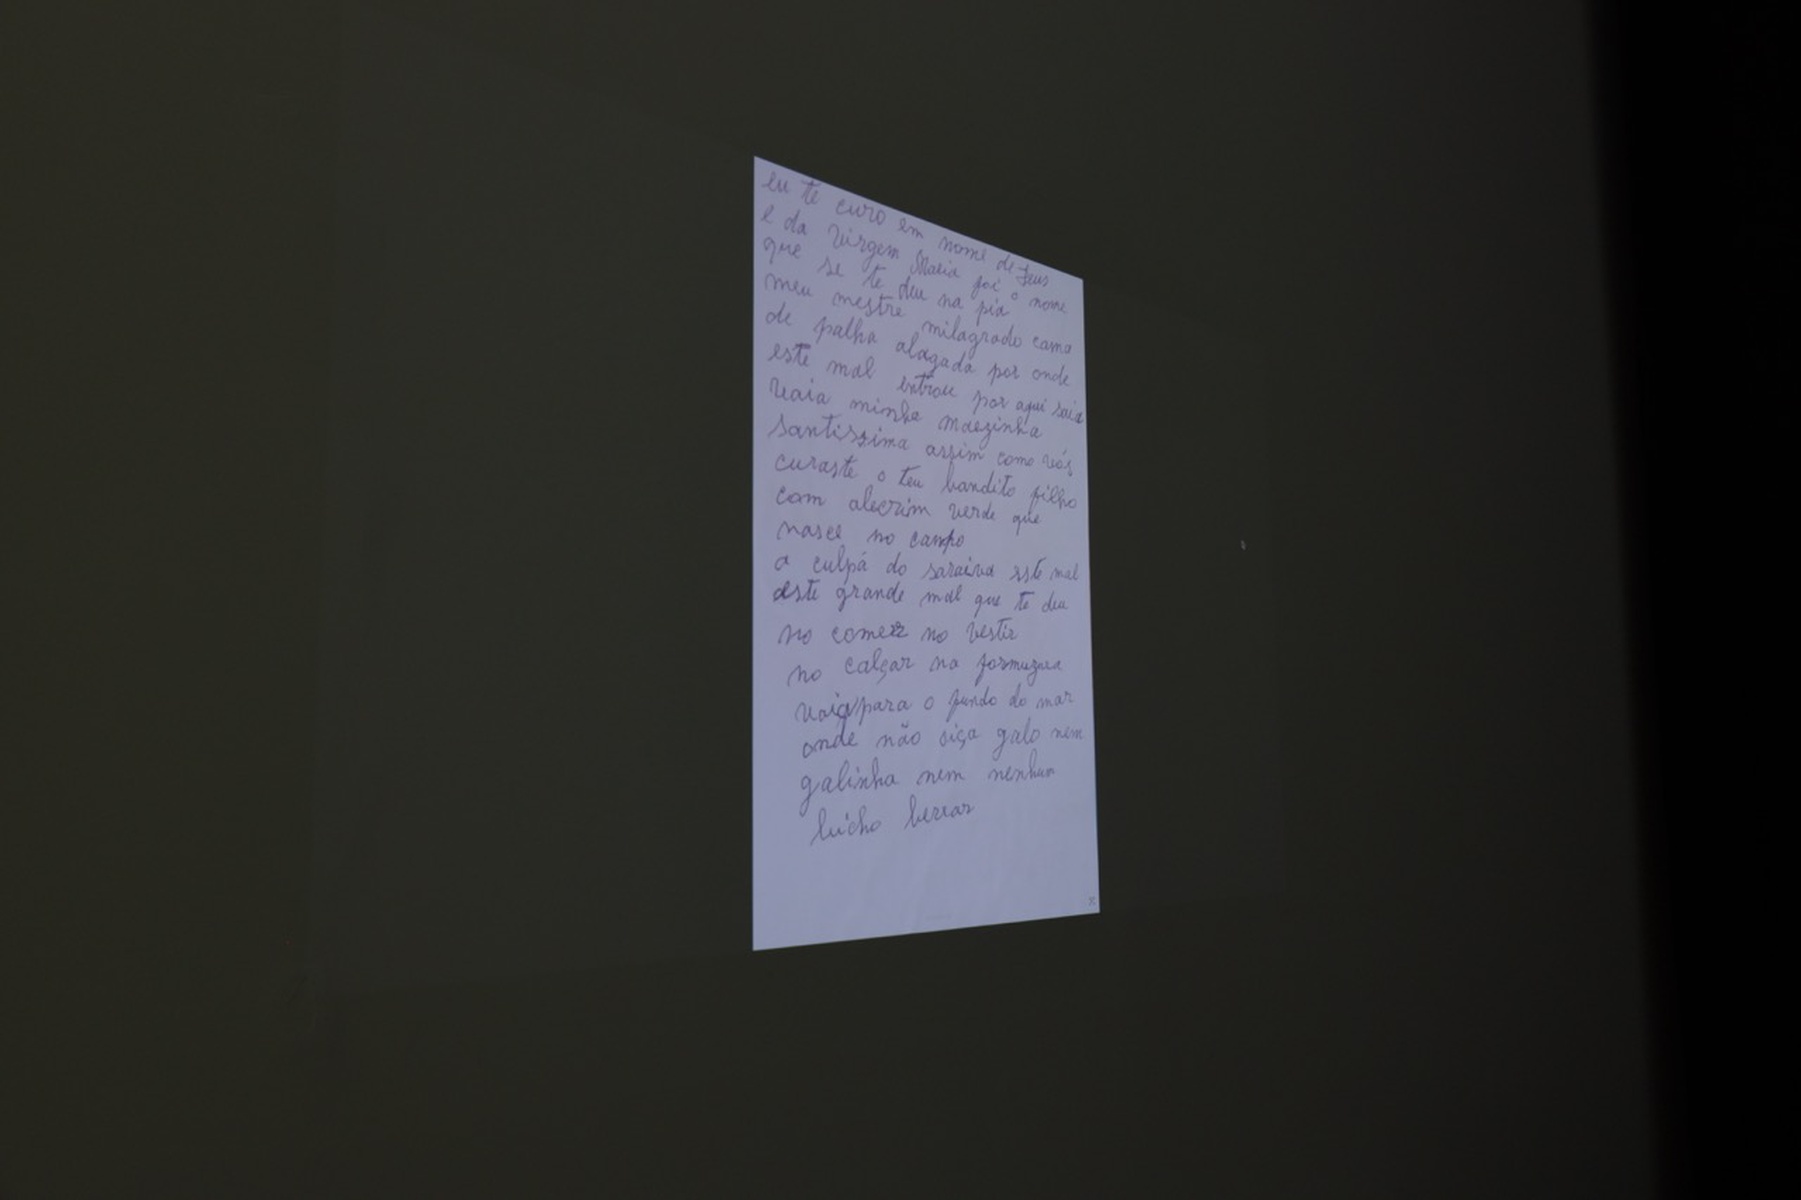 eu te curo em nome de Jeus
e da virgem Maria foi o nome
que se te deu na pia
meu mestre milagrado cama
de palha alagada por onde
este mal entrou por aqui saia
Vaia minha maezinha
santissima assim como vós
curaste o teu bandito filho
com alecrim verde que
nasce no campo
a culpá do saraiva este mal
este grande mal que te deu
no comer no vestir
no calçar na
vaia para o fundo do mar
onde não oiça galo nem
galinha nem nenhum
bicho berrar